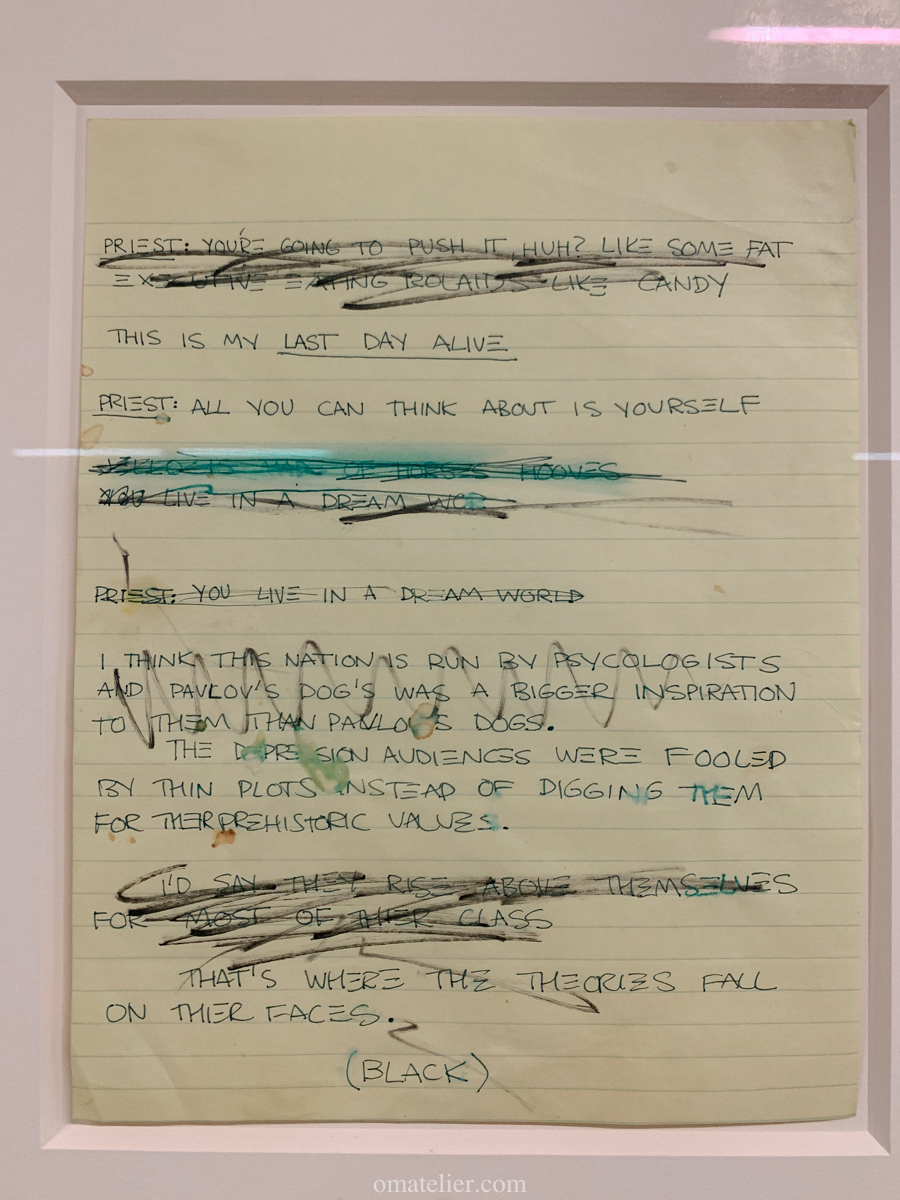 PRIEST: YOU'RE GOING TO PUSH IT HUH? LIKE SOME FAT
EXECUTIVE EATING ROLAIDS LIKE CANDY
THIS IS MY LAST DAY ALIVE
PRIEST: ALL YOU CAN THINK ABOUT IS YOURSELF
OF HORSES HOOVES
LIVE IN A DREAM WO
PRIEST: YOU LIVE IN A DREAM WORLD
I THINK THIS NATION IS RUN BY PSYCOLOGISTS
AND PAVLOV'S DOG'S WAS A BIGGER INSPIRATION
TO THEM THAN PAVLOV'S DOGS.
THE DEPRESSION AUDIENCES WERE FOOLED
BY THIN PLOTS INSTEAD OF DIGGING THEM
FOR THEIR PREHISTORIC VALUES.
I'D SAY THEY RISE ABOVE THEMSELVES
FOR MOST OF THIER CLASS
THAT'S WHERE THE THEORIES FALL
ON THIER FACES.
(BLACK)
omatelier.com